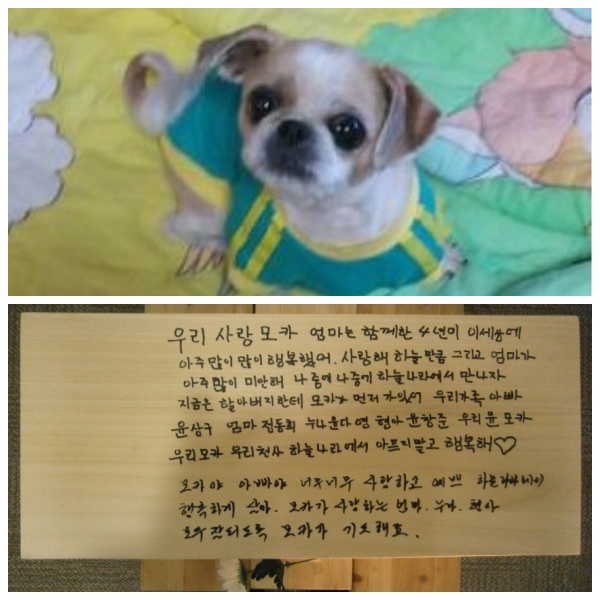 우리 사랑 모카 엄마는 함께한 4년이 이세상에
아주 많이 많이 행복했어. 사랑해 하늘만큼 그리고 엄마가
아주 많이 미안해 나중에 나중에 하늘나라에서 만나자
지금은 할아버지한테 모카가 먼저 가있어 우리가족 아빠
윤상구 엄마 정동희 누나 윤다영 형아 윤창준 우리 윤모카
우리모카 우리천사 하늘나라에서 아프지말고 행복해♡
모카야 아빠야 너무너무 사랑하고 예쁘
행복하게 살아. 모카가 사랑하는 엄마. 누나. 형아
모두 잘되도록 모카가 기도해줘.